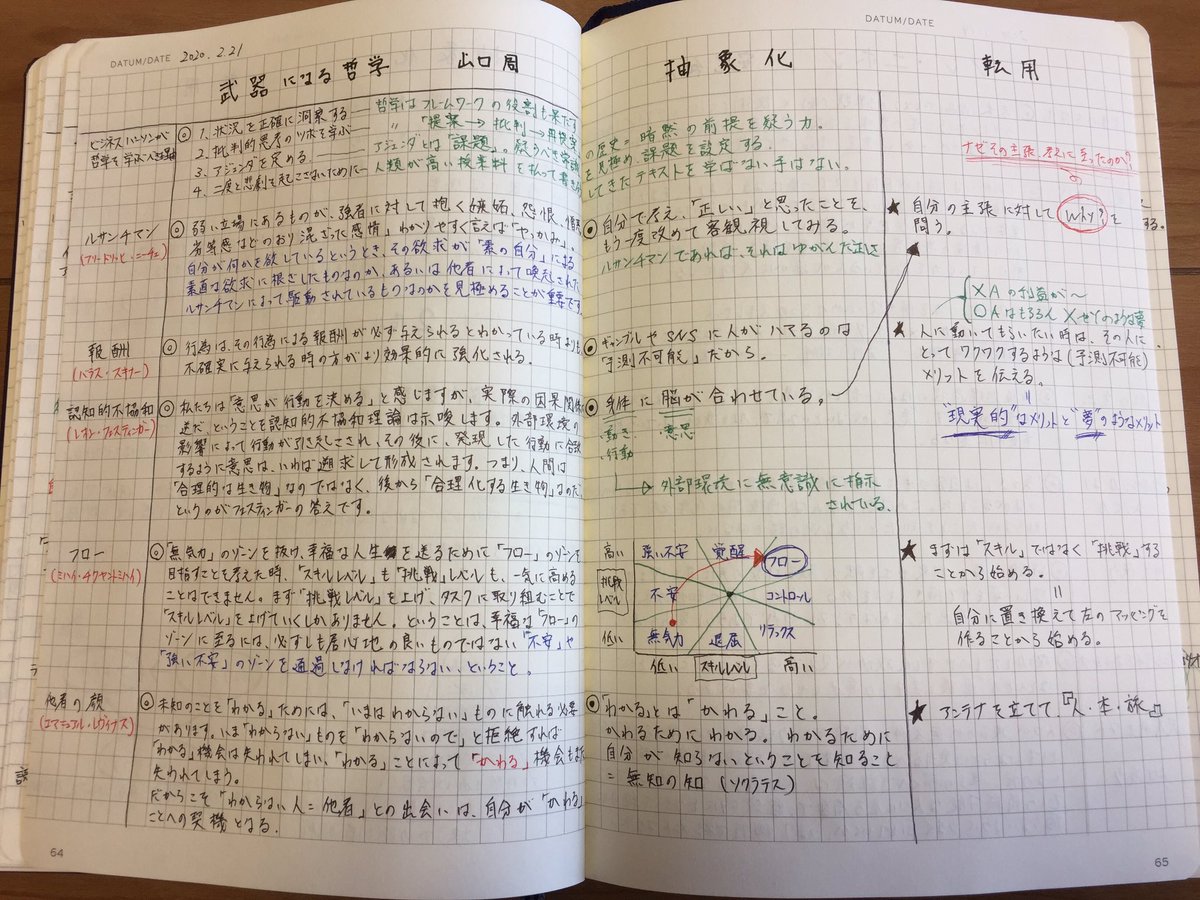 DATUM/DATE 2020.2.21
武器になる哲学 山口周
ビジネスパーソンが
哲学を学ぶべき理由
◎ 1. 状況を正確に洞察する ― 哲学はフレームワークの役割も果たす
2. 批判的思考のツボを学ぶ ― 〃 「提案→批判→再提案
3. アジェンダを定める ― アジェンダとは「課題」。疑うべき常識
4. 二度と悲劇を起こさないために ― 人類が高い授業料を払って書き
ルサンチマン
(フリードリッヒ・ニーチェ)
◎ 弱い立場にあるものが、強者に対して抱く嫉妬、怨恨、憎悪
劣等感などのおり混ざった感情」わかりやすく言えば「やっかみ」。
自分が何かを欲しているというとき、その欲求が「素の自分」による
素直な欲求に根ざしたものなのか、あるいは他者によって喚起された
ルサンチマンによって駆動されているものなのかを見極めることが重要です
報酬
(バラス・スキナー)
◎ 行為は、その行為による報酬が必ず与えられるとわかっている時よりも、
不確実に与えられる時の方がより効果的に強化される。
認知的不協和
(レオン・フェスティンガー)
◎ 私たちは「意思が行動を決める」と感じますが、実際の因果関係は
逆だ、ということを認知的不協和理論は示唆します。外部環境の
影響によって行動が引き起こされ、その後に、発現した行動に合致
するように意思は、いわば遡求して形成されます。つまり、人間は
「合理的な生き物」なのではなく、後から「合理化する生き物」なのだ、
というのがフェスティンガーの答えです。
フロー
(ミハイ・チクセントミハイ)
◎「無気力」のゾーンを抜け、幸福な人生を送るために「フロー」のゾーンを
目指すことを考えた時、「スキルレベル」も「挑戦」レベルも、一気に高める
ことはできません。まず「挑戦レベル」を上げ、タスクに取り組むことで
「スキルレベル」を上げていくしかありません。ということは、幸福な「フロー」の
ゾーンに至るには、必ずしも居心地の良いものではない「不安」や
「強い不安」のゾーンを通過しなければならない、ということ。
他者の顔
(エマニュエル・レヴィナス)
◎ 未知のことを「わかる」ためには、「いまはわからない」ものに触れる必要
があります。いま「わからない」ものを「わからないので」と拒絶すれば
「わかる」機会は失われてしまい、「わかる」ことによって「かわる」機会もまた
失われてしまう。
だからこそ「わからない人＝他者」との出会いは、自分が「かわる」
ことへの契機となる.
64
DATUM/DATE
抽象化
の歴史＝暗黙の前提を疑う力.
を見極め、課題を設定する.
してきたテキストを学ばない手はない.
◎ 自分で考え、「正しい」と思ったことを、
もう一度改めて客観視してみる。
ルサンチマンであれば、それはゆがんだ正しさ
◎ ギャンブルやSNSに人がハマるのは
「予測不可能」だから。
◎ 身体に脳が合わせている。
・動き ・意思
・行動
→ 外部環境に無意識に指示
されている.
高い
挑戦
レベル
低い
強い不安 覚醒 フロー
不安 コントロール
無気力 退屈 リラックス
低い スキルレベル 高い
◎「わかる」とは「かわる」こと。
かわるためにわかる。わかるために
自分が知らないということを知ること
＝無知の知 (ソクラテス)
転用
ナゼその主張、考えに至ったのか?
★ 自分の主張に対して Why? を
問う。 する.
×Aの利益が～
○Aはもちろん
★ 人に動いてもらいたい時は、その人に
とってワクワクするような(予測不可能)
メリットを伝える。
＝
"現実的"なメリットと"夢"のようなメリット
★ まずは「スキル」ではなく「挑戦」する
ことから始める.
＝
自分に置き換えて左のマッピングを
作ることから始める.
★ アンテナを立てて、『人・本・旅』
65